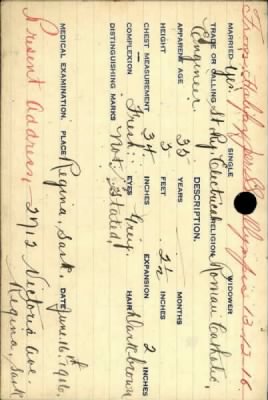 From Halifax per S.S. Olympic 13.12.16.
MARRIED Yes SINGLE WIDOWER
TRADE OR CALLING St. Ry. Electrical RELIGION Roman Catholic,
Engineer.
DESCRIPTION.
APPARENT AGE 35 YEARS MONTHS
HEIGHT 5 FEET 2½ INCHES
CHEST MEASUREMENT 34 INCHES EXPANSION 2 INCHES
COMPLEXION Fresh: EYES Grey HAIR Dark brown
DISTINGUISHING MARKS Not Stated,
MEDICAL EXAMINATION. PLACE Regina, Sask. DATE June 16th 1916.
Present Address, 2712 Victoria Ave.
Regina, Sask